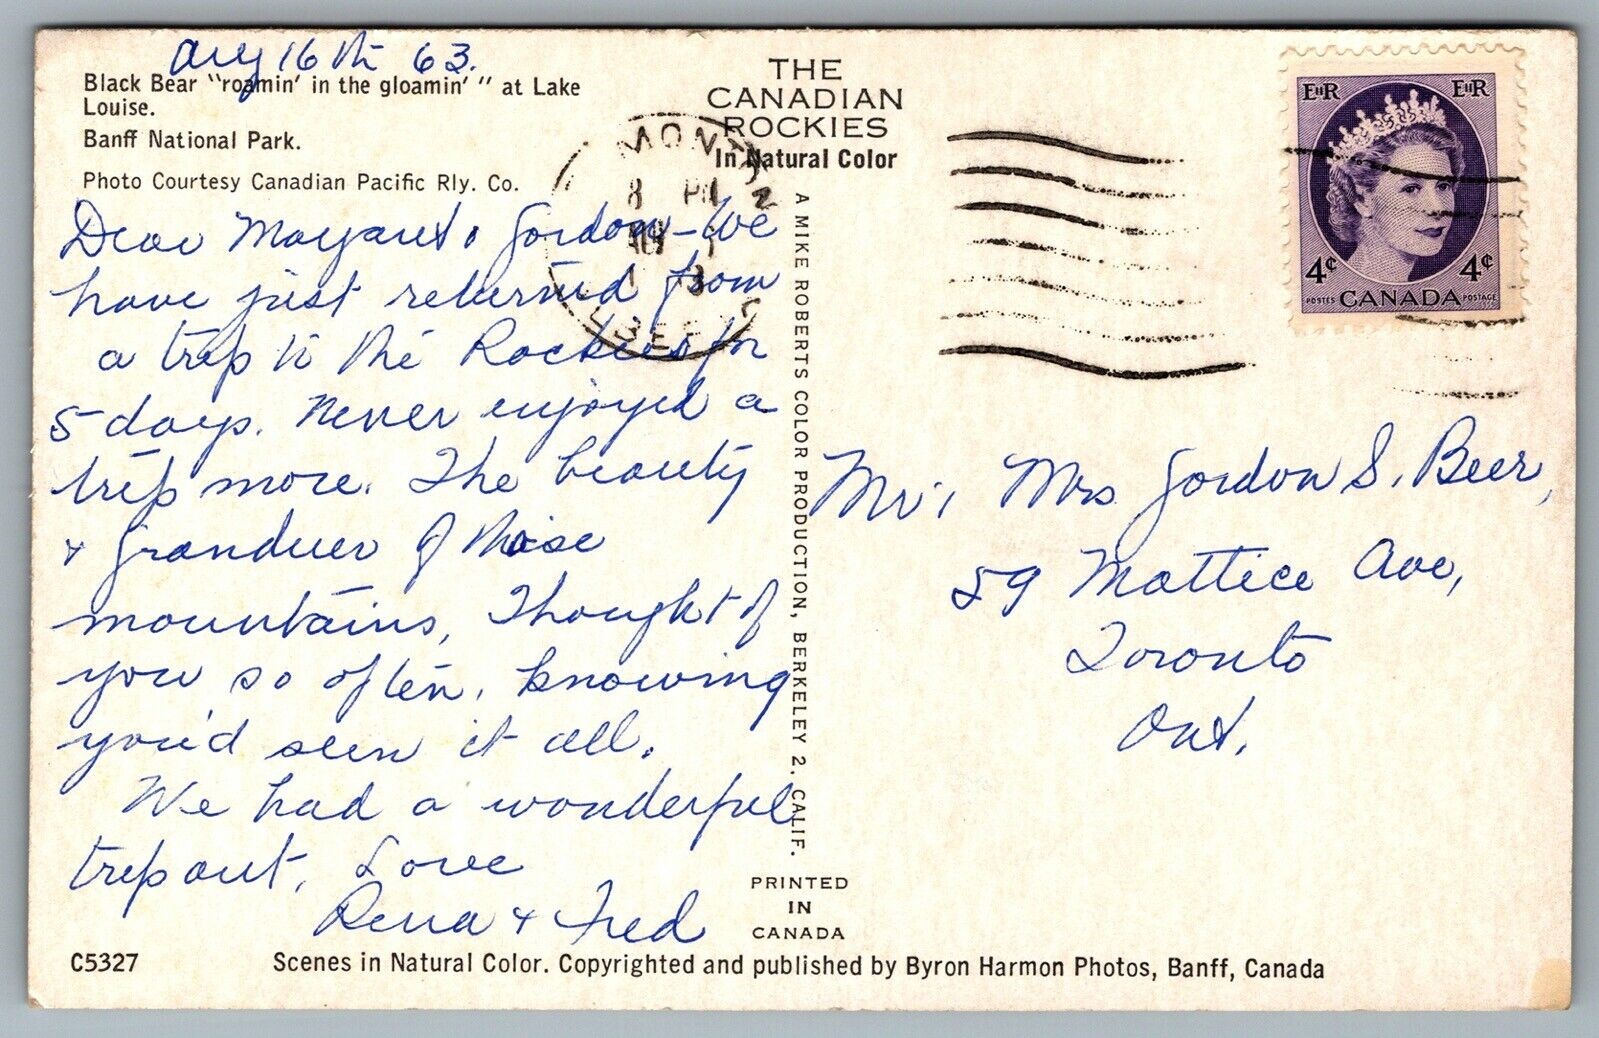 Aug 16th 63.
Black Bear "roamin' in the gloamin' " at Lake
Louise.
Banff National Park.
Photo Courtesy Canadian Pacific Rly. Co.
Dear Margaret & Gordon - We
have just returned from
a trip to the Rockies for
5 days. Never enjoyed a
trip more. The beauty
& granduer of these
mountains, Thought of
you so often, knowing
you'd seen it all.
We had a wonderful
trip out. Love
Rena & Fred
C5327
THE
CANADIAN
ROCKIES
In Natural Color
A MIKE ROBERTS COLOR PRODUCTION, BERKELEY 2, CALIF.
PRINTED
IN
CANADA
EIIR EIIR
4¢ 4¢
POSTES CANADA POSTAGE
EDMONTON
8 PM
ALBERTA
Mr & Mrs Gordon S. Beer,
59 Mattice Ave,
Toronto
Ont.
Scenes in Natural Color. Copyrighted and published by Byron Harmon Photos, Banff, Canada